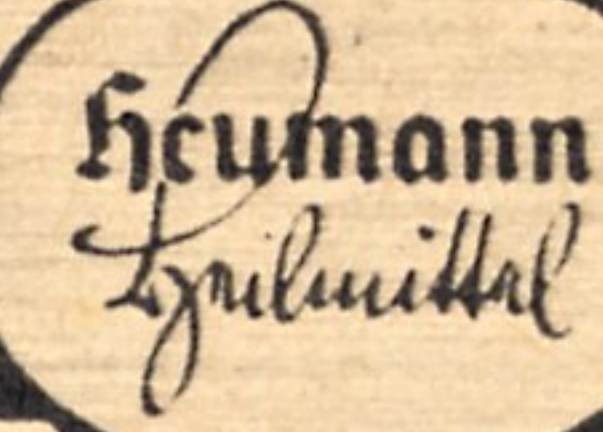 Heumann
Heilmittel